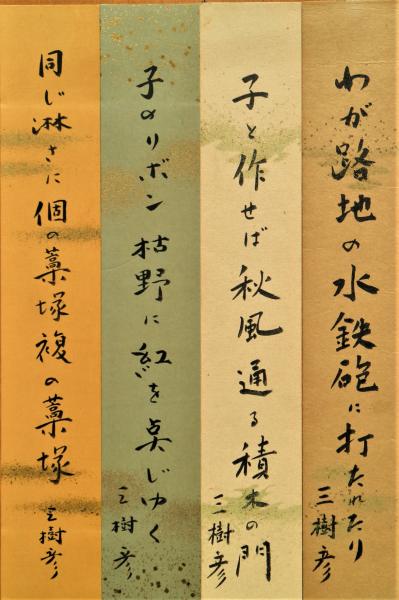 わが路地の水鉄砲に打たれたり
三樹彦
子と作せば秋風通る積木の門
三樹彦
子のリボン枯野に紅を点じゆく
三樹彦
同じ淋さに個の藁塚複の藁塚
三樹彦